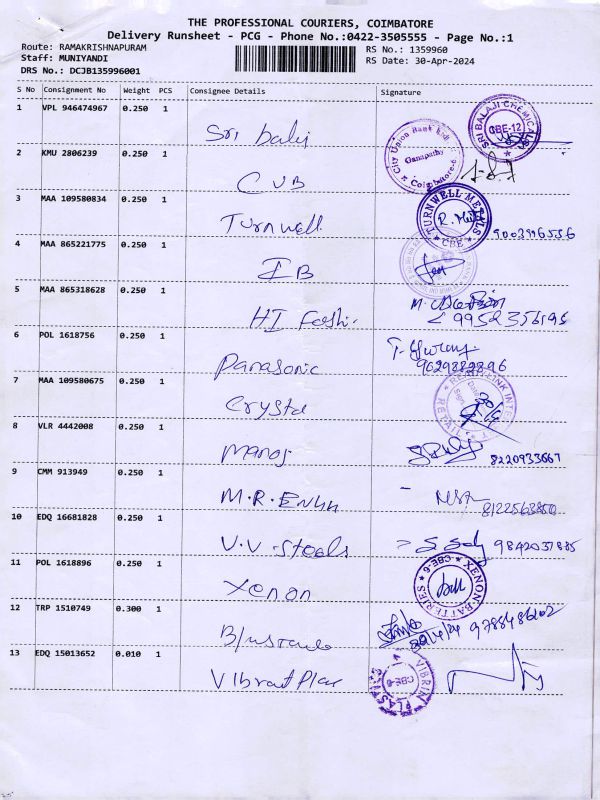 THE PROFESSIONAL COURIERS, COIMBATORE
Delivery Runsheet - PCG - Phone No.:0422-3505555 - Page No.:1
Route: RAMAKRISHNAPURAM
RS No.: 1359960
Staff: MUNIYANDI
RS Date: 30-Apr-2024
DRS No.: DCJB135996001
S No Consignment No Weight PCS Consignee Details Signature
1 VPL 946474967 0.250 1
Sri balaji
SRI BALAJI CHEMICA
CBE-12
2 KMU 2806239 0.250 1
CUB
City Union Bank Ltd
Ganapathy
Coimbatore-6
3 MAA 109580834 0.250 1
Turnwell
TURNWELL METALS
CBE
4 MAA 865221775 0.250 1
IB
5 MAA 865318628 0.250 1
HI Fashi.
6 POL 1618756 0.250 1
Panasonic
7 MAA 109580675 0.250 1
Crystal
8 VLR 4442008 0.250 1
Manoj
8220933667
9 CMM 913949 0.250 1
M.R.
10 EDQ 16681828 0.250 1
V.V. Steels
9842037835
11 POL 1618896 0.250 1
Xenon
XENON BATTERIES
CBE-6
12 TRP 1510749 0.300 1
30/4/24
13 EDQ 15013652 0.010 1
Vibrant Plas
VIBRIN PLASTICS
CBE-6